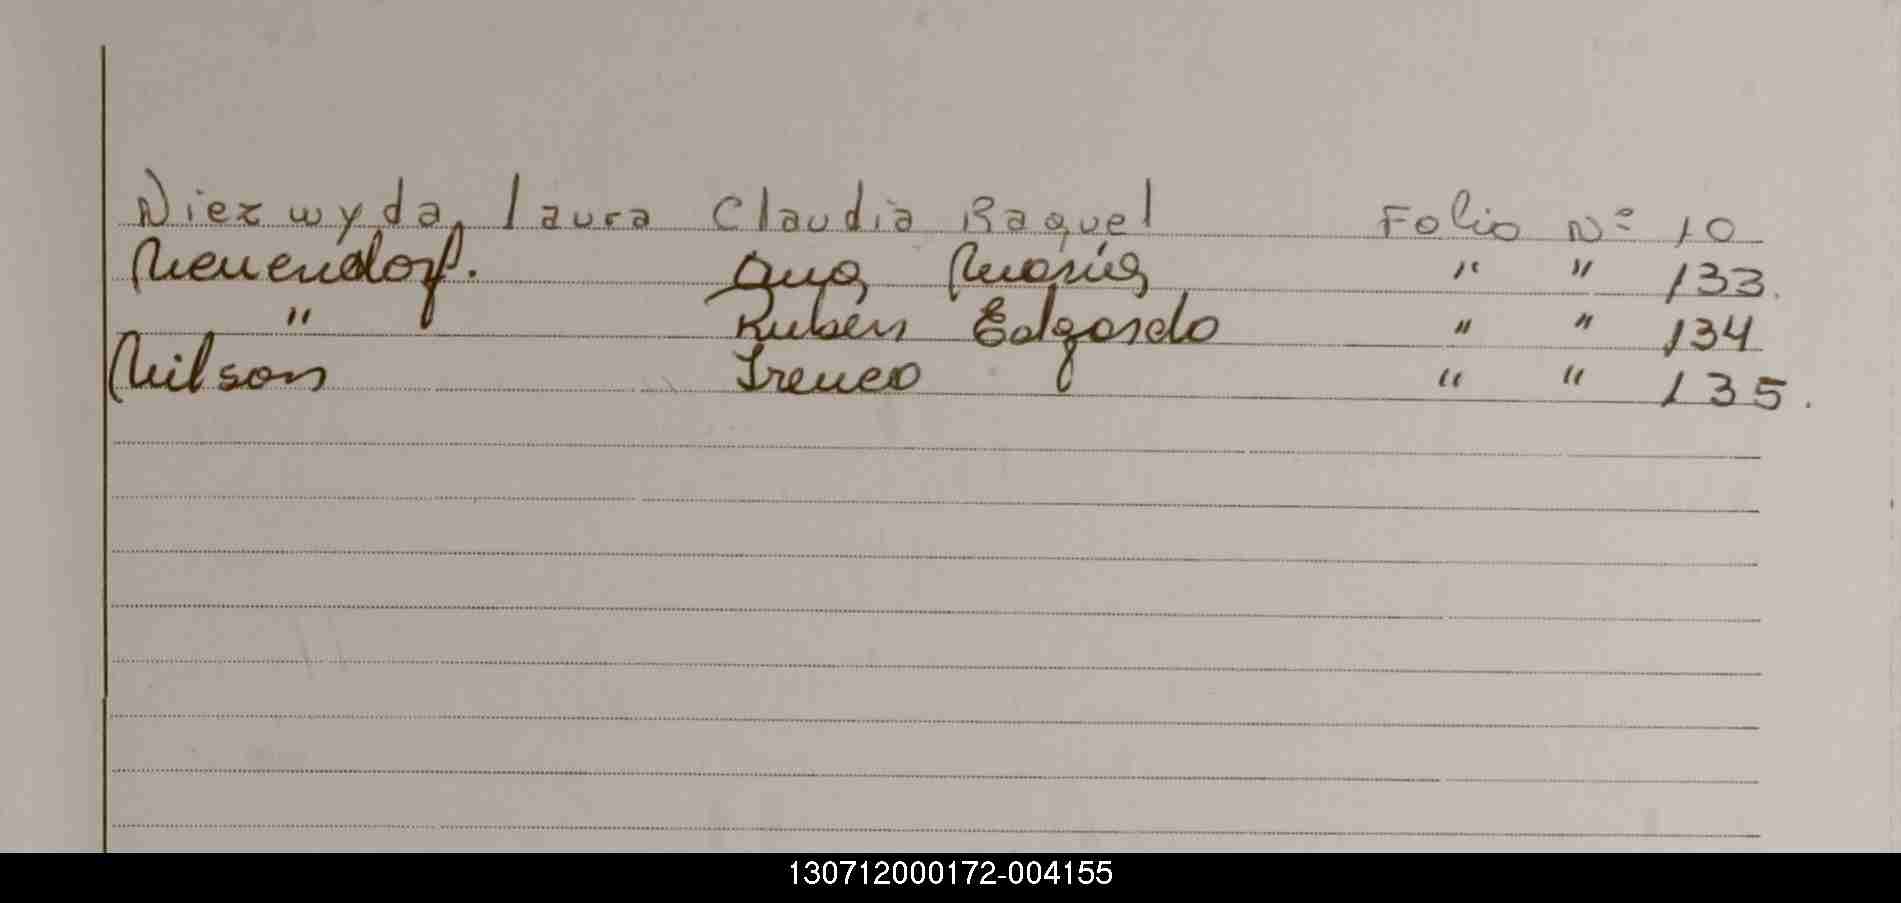 Niezwyda, Laura Claudia Raquel Folio Nº 10
Neuendorf. Ana María " " 133.
" Ruben Edgardo " " 134
Nilson Ireneo " " 135.
130712000172-004155